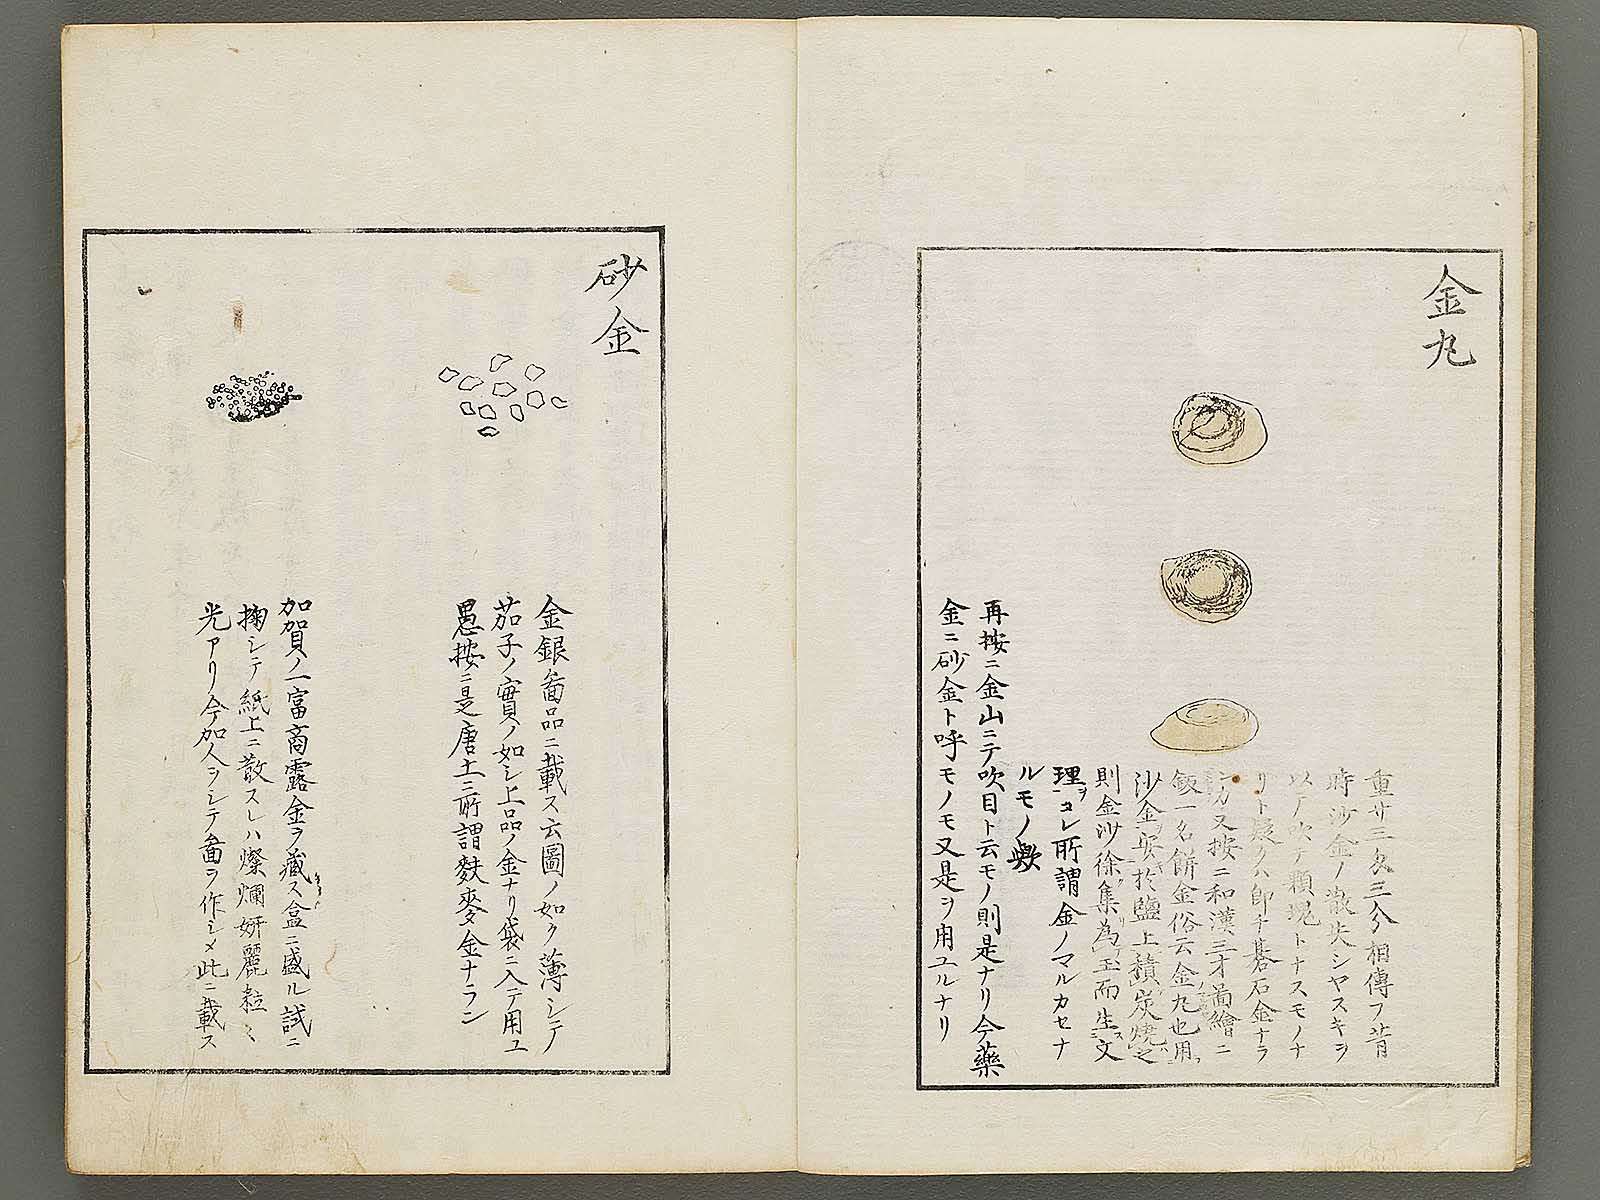 金丸
重廿三匁三分相傳フ昔
時沙金ノ散失シヤスキヲ
以テ吹テ顆塊トナスモノナ
リト疑クハ即チ碁石金ナラ
ンカ又按ニ和漢三才圖繪ニ
鈑一名餅金俗云金丸也用
沙金安於鹽上積炭燒之
則金沙徐集為玉而生文
理ヲコレ所謂金ノマルカセナ
ルモノ歟
再按ニ金山ニテ吹目ト云モノ則是ナリ今藥
金ニ砂金ト呼モノモ又是ヲ用ユルナリ
砂金
金銀啚品ニ載ス云圖ノ如ク薄シテ
茄子ノ實ノ如シ上品ノ金ナリ袋ニ入テ用ユ
愚按ニ是唐土ニ所謂麩麥金ナラン
加賀ノ一富商露金ヲ藏ス盒ニ盛ル試ニ
掬シテ紙上ニ散スレハ燦爛妍麗粒〻
光アリ今加人ヲシテ啚ヲ作シメ此ニ載ス